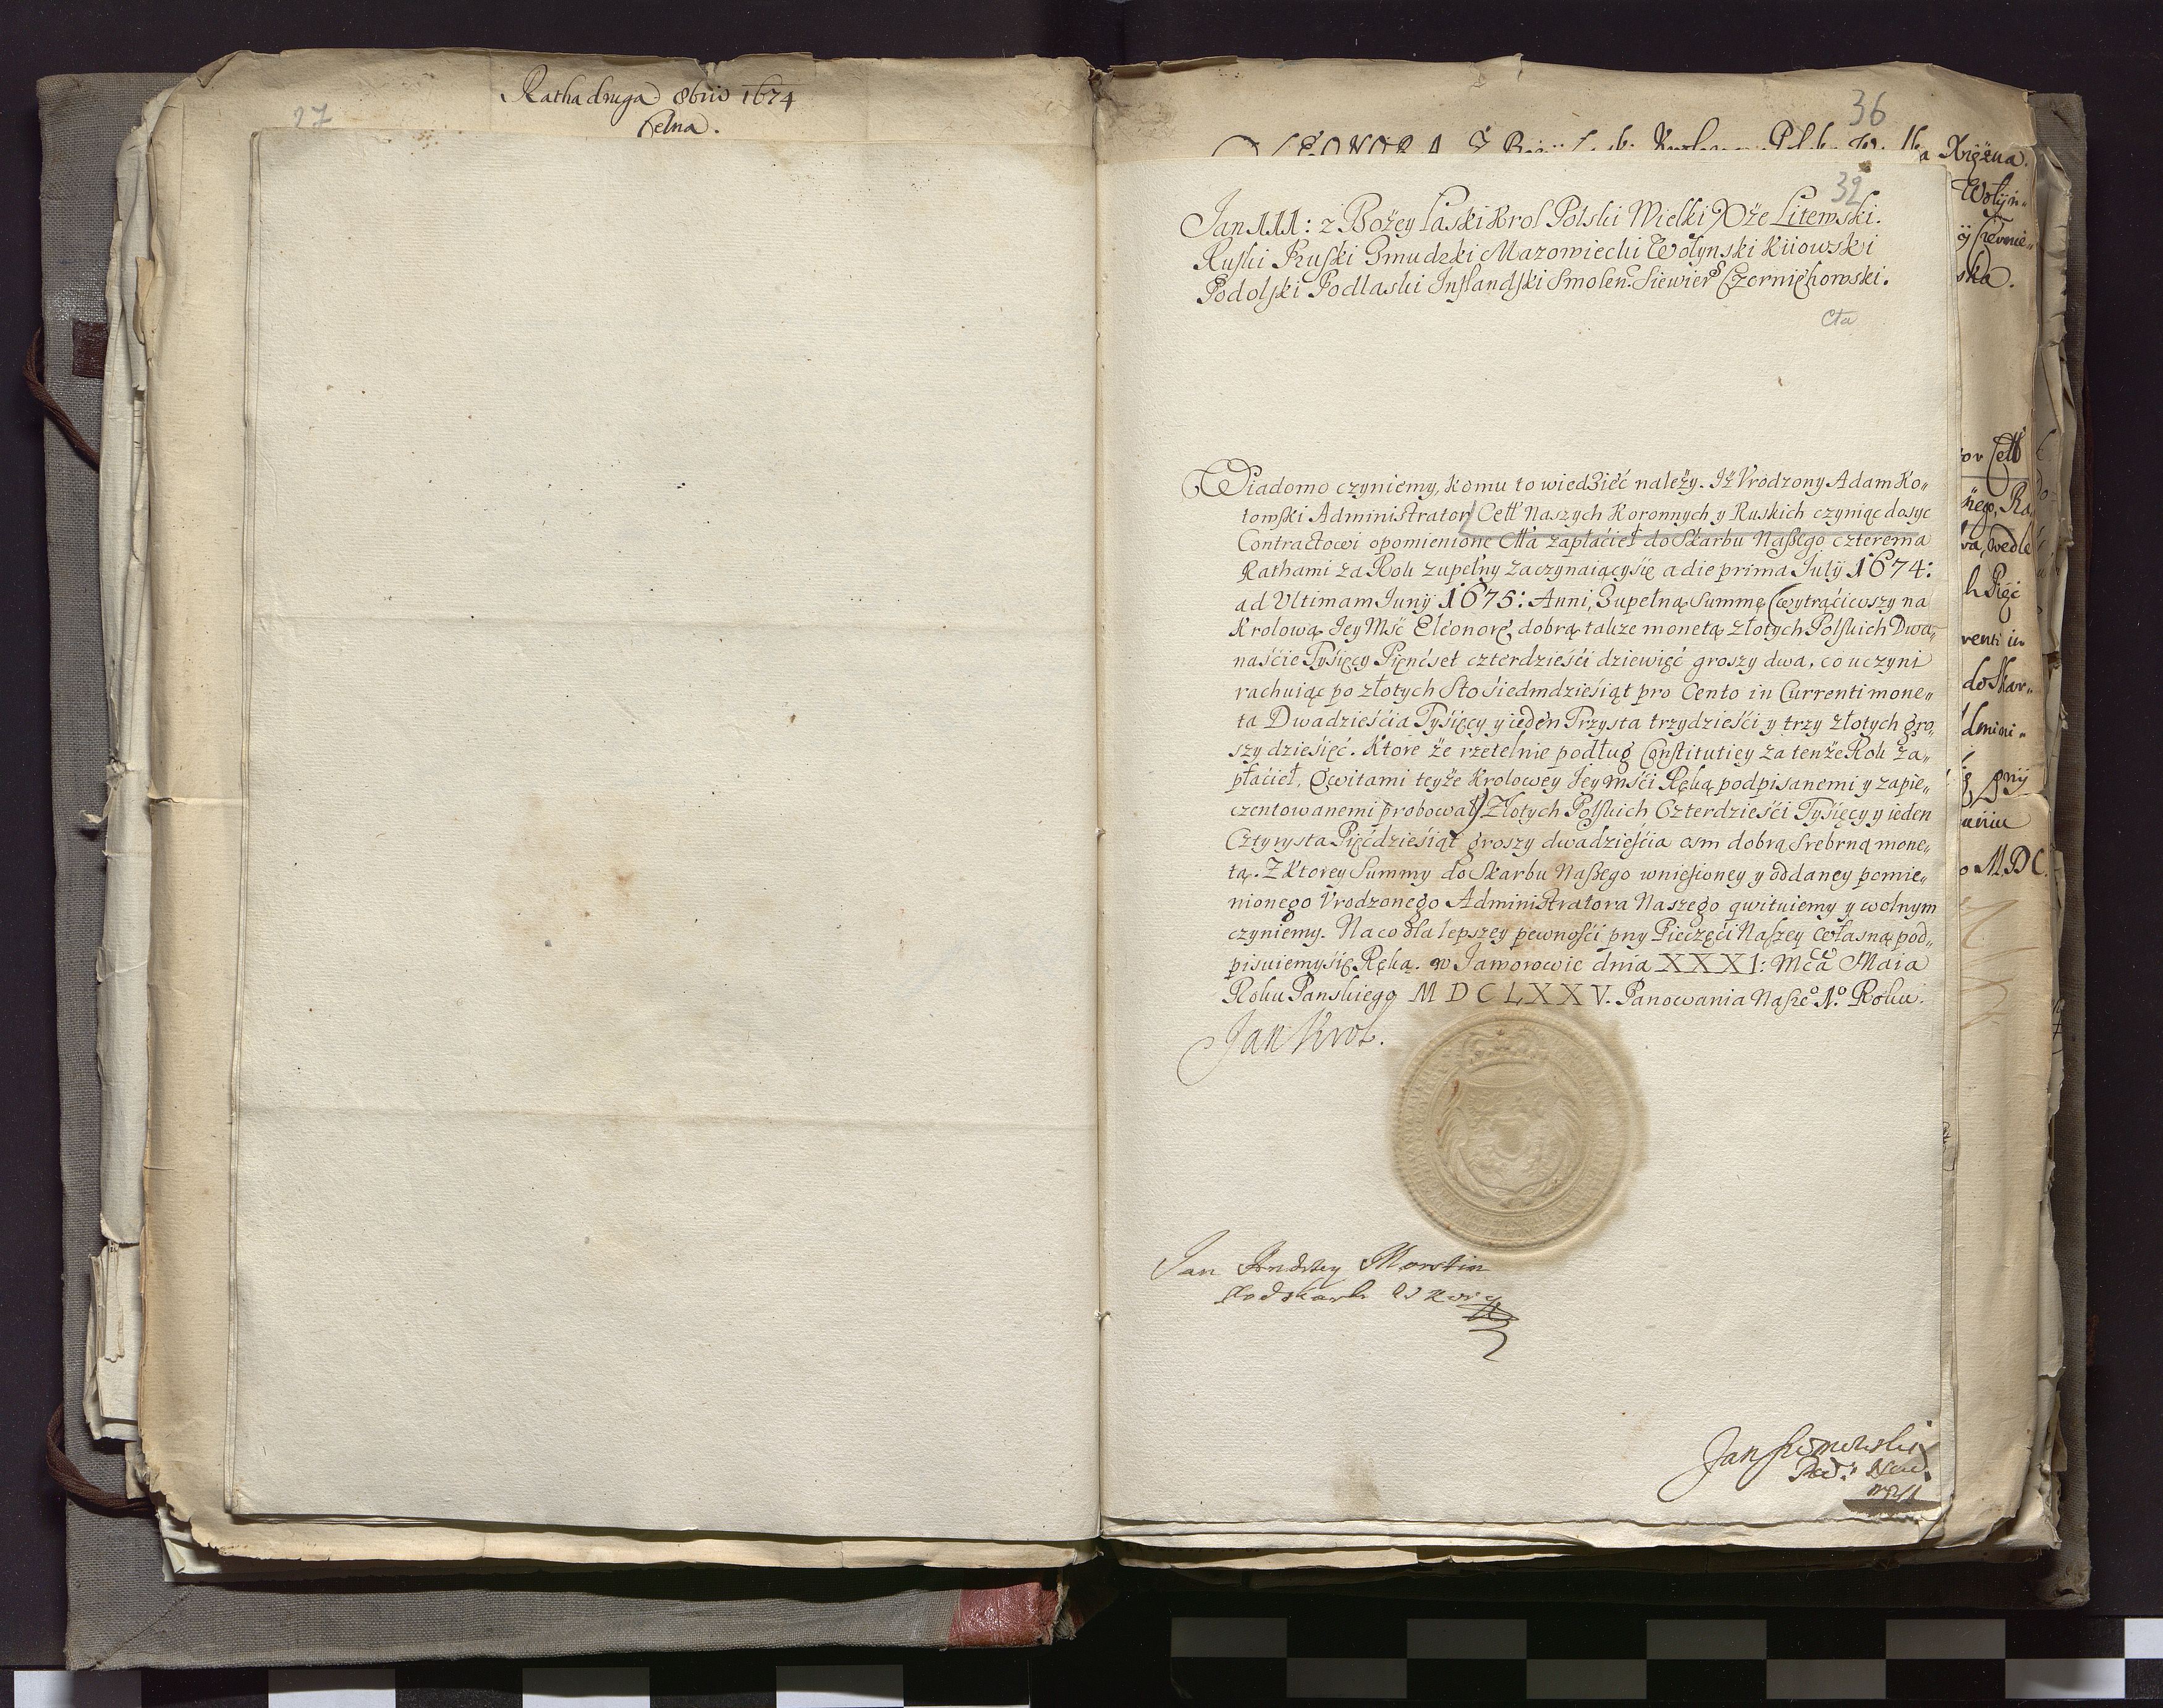 Ratha druga 8bris 1674
Celna.
27
36
32
Jan III: z Bożey Łaski Krol Polski Wielki Xże Litewski.
Ruski Pruski Zmudzki Mazowiecki Wołynski Kiiowski
Podolski Podlaski Inflandski Smolen. Siewier. Czerniehowski.
Cła
Wiadomo czyniemy, komu to wiedzieć należy. Iż Vrodzony Adam Ko„
towski Administrator Cełł Naszych Koronnych y Ruskich czyniąc dosyc
Contractowi o pomienione Cła zapłacieł do Skarbu Naszego czterema
Rathami za Rok zupełny zaczynaiący się a die prima July 1674:
ad Vltimam Juny 1675: Anni, Zupełną Summę (wytrąciwszy na
Krolową Jey Mść Eleonorę, dobrą także monetą złotych Polskich Dwa„
naście Tysięcy Pięncset czterdzieści dziewięć groszy dwa, co uczyni
rachuiąc po złotych Sto siedmdziesiąt pro Cento in Currenti mone„
ta Dwadzieścia Tysięcy y ieden Trzysta trzydzieści y trzy złotych gro„
szy dziesięć. Ktore że rzetelnie podług Constitutiey za tenże Rok za„
płacieł, Qwitami teyże Krolowey Jey Mści Ręką podpisanemi y zapie„
czentowanemi probował) Złotych Polskich Czterdzieści Tysięcy y ieden
Cztyrysta Pięćdziesiąt groszy dwadzieścia osm dobrą srebrną mone„
tą. Z ktorey Summy do Skarbu Naszego wniesioney y oddaney pomie„
nionego Vrodzonego Administratora Naszego qwituiemy y wolnym
czyniemy. Na co dla lepszey pewności przy Pieczęci Naszey własną pod„
pisuiemy się Ręką. w Jaworowie dnia XXXI: Mca Maia
Roku Panskiego MDCLXXV. Panowania Nasze° 1.° Roku.
Jan Krol.
Jan Andrzey Morstin
Podskarb W Kor
Jan
a Xiężna.
Wołyn„
ska.
or Cełł
wedle
h Pięć
renti in
do Skar„
dmini„
o M.DC.